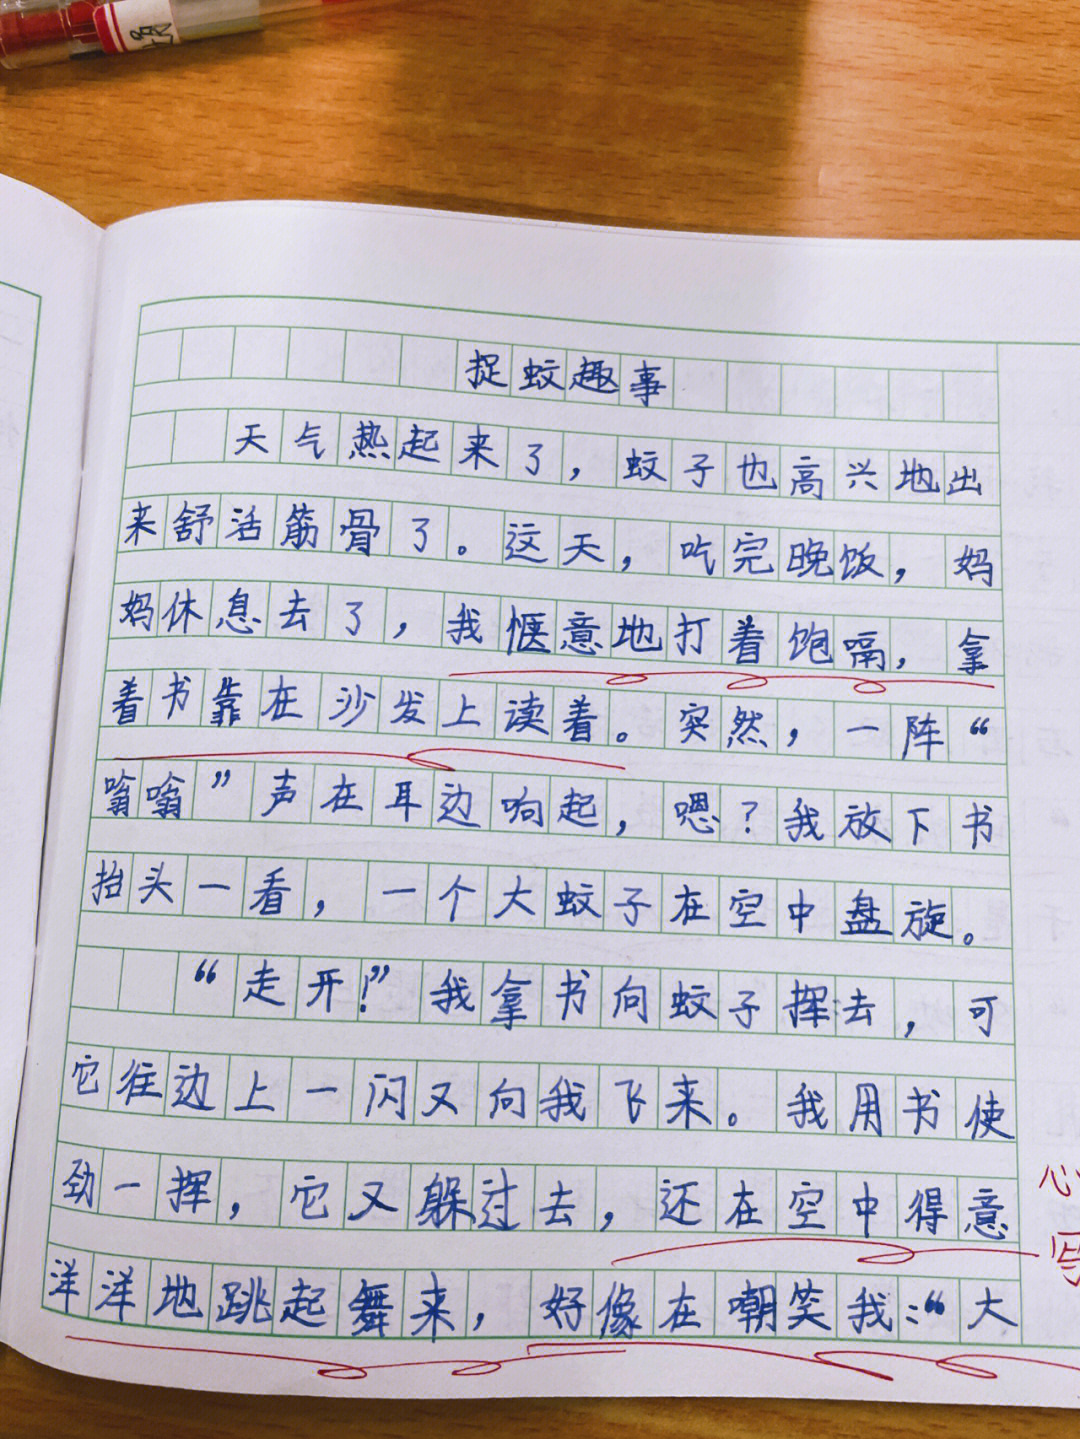 捉蚊趣事
天气热起来了，蚊子也高兴地出
来舒活筋骨了。这天，吃完晚饭，妈
妈休息去了，我惬意地打着饱嗝，拿
着书靠在沙发上读着。突然，一阵“
嗡嗡”声在耳边响起，嗯？我放下书
抬头一看，一个大蚊子在空中盘旋。
“走开！”我拿书向蚊子挥去，可
它往边上一闪又向我飞来。我用书使
劲一挥，它又躲过去，还在空中得意
洋洋地跳起舞来，好像在嘲笑我：“大